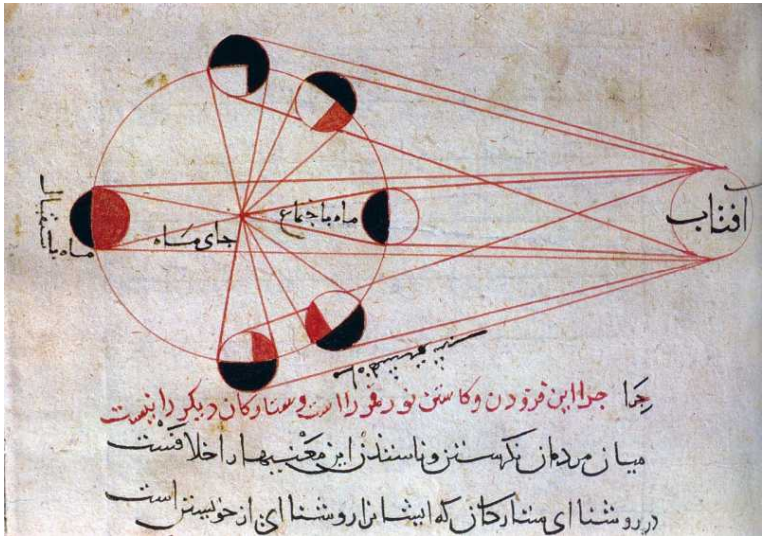 آفتاب
ماه باجتماع
جای ماه
ماه باستقبال
چرا چرا این فزودن و کاستن نور قمر را است و ستارگان دیگر را نیست
میان مردمان نگرستن و ناستدن این معنیها را خلافست
در روشنای ستارگان که ایشانرا روشنای از خویشتن است